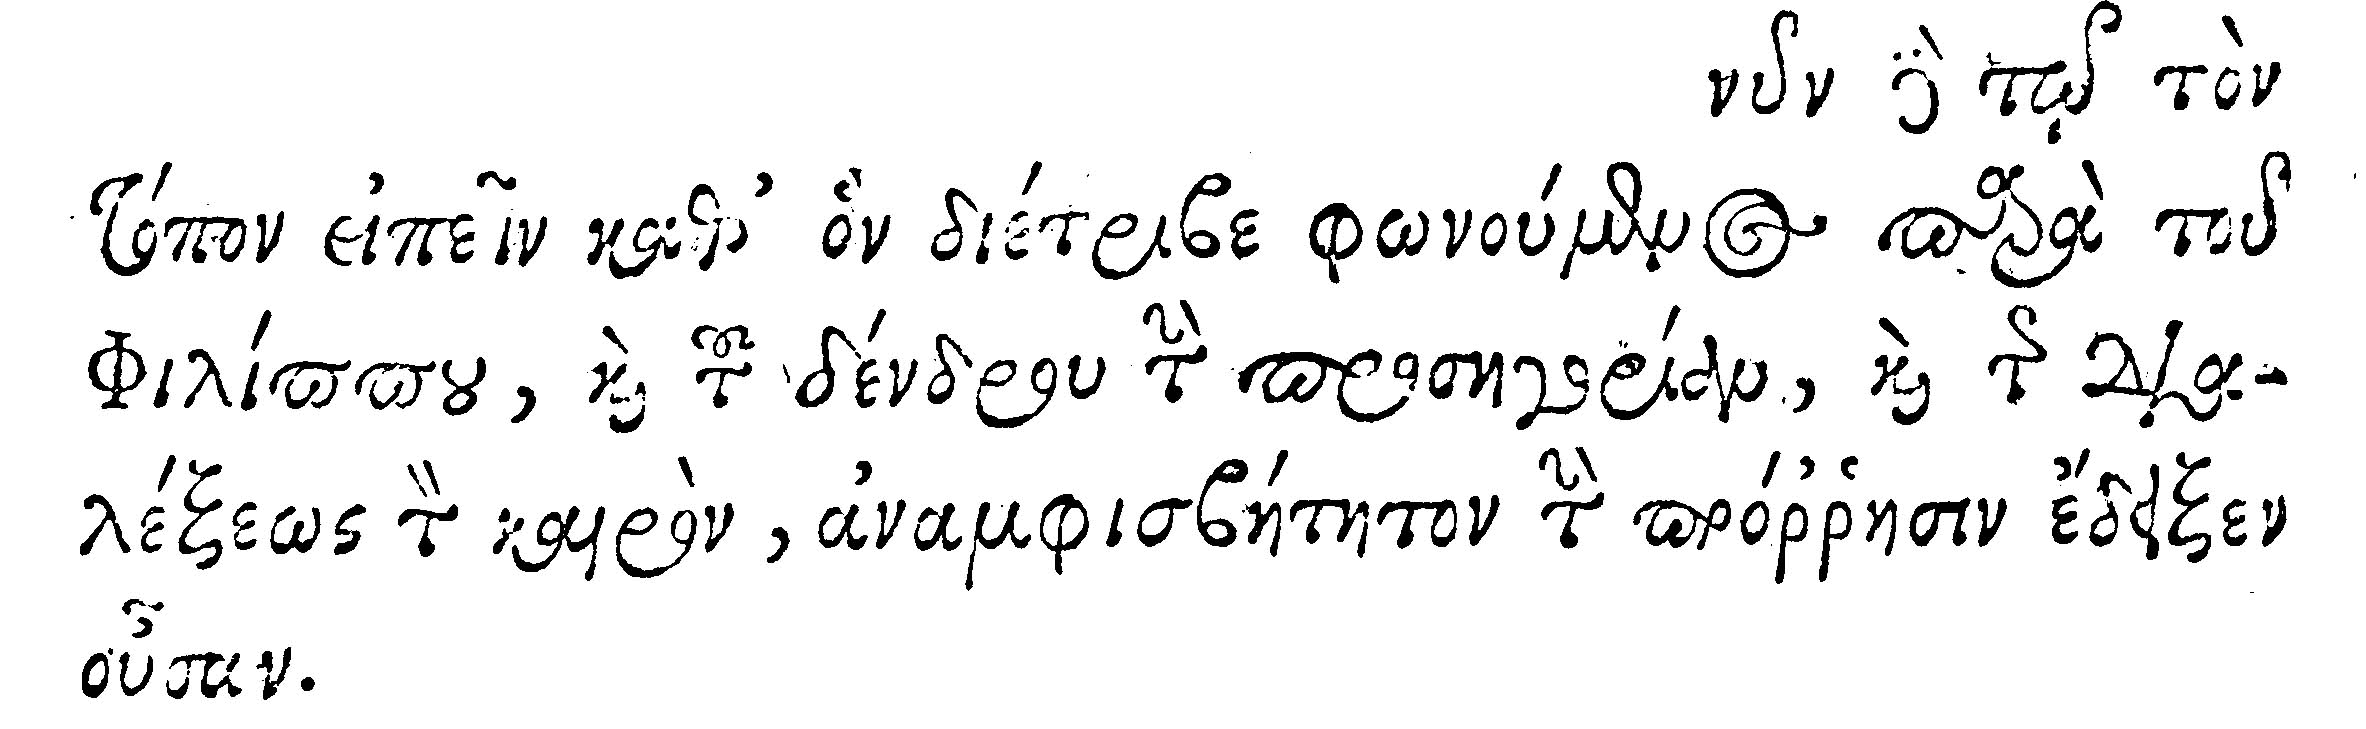 νῦν δὲ τῷ τὸν
τόπον εἰπεῖν καθ’ ὃν διέτριβε φωνούμενος παρὰ τοῦ
Φιλίππου, καὶ τοῦ δένδρου τὴν προσηγορίαν, καὶ τῆς δια-
λέξεως τὸν καιρὸν, ἀναμφισβήτητον τὴν πρόῤῥησιν ἔδειξεν
οὖσαν.